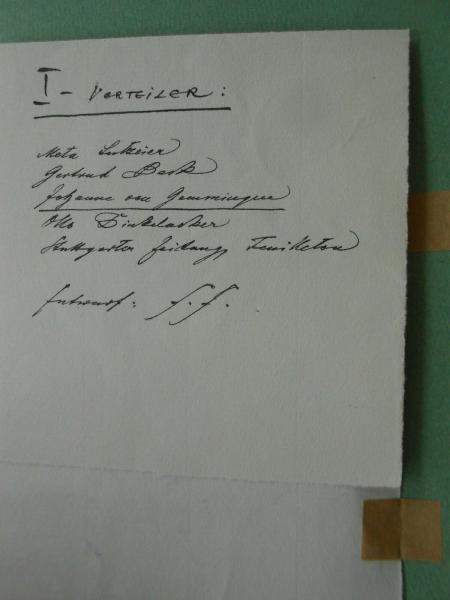 I - VERTEILER:
Meta
Gertrud Beck
Johanna von Gemmingen
Otto Dinkelacker
Stuttgarter Zeitung, Feuilleton
Entwurf: f.f.